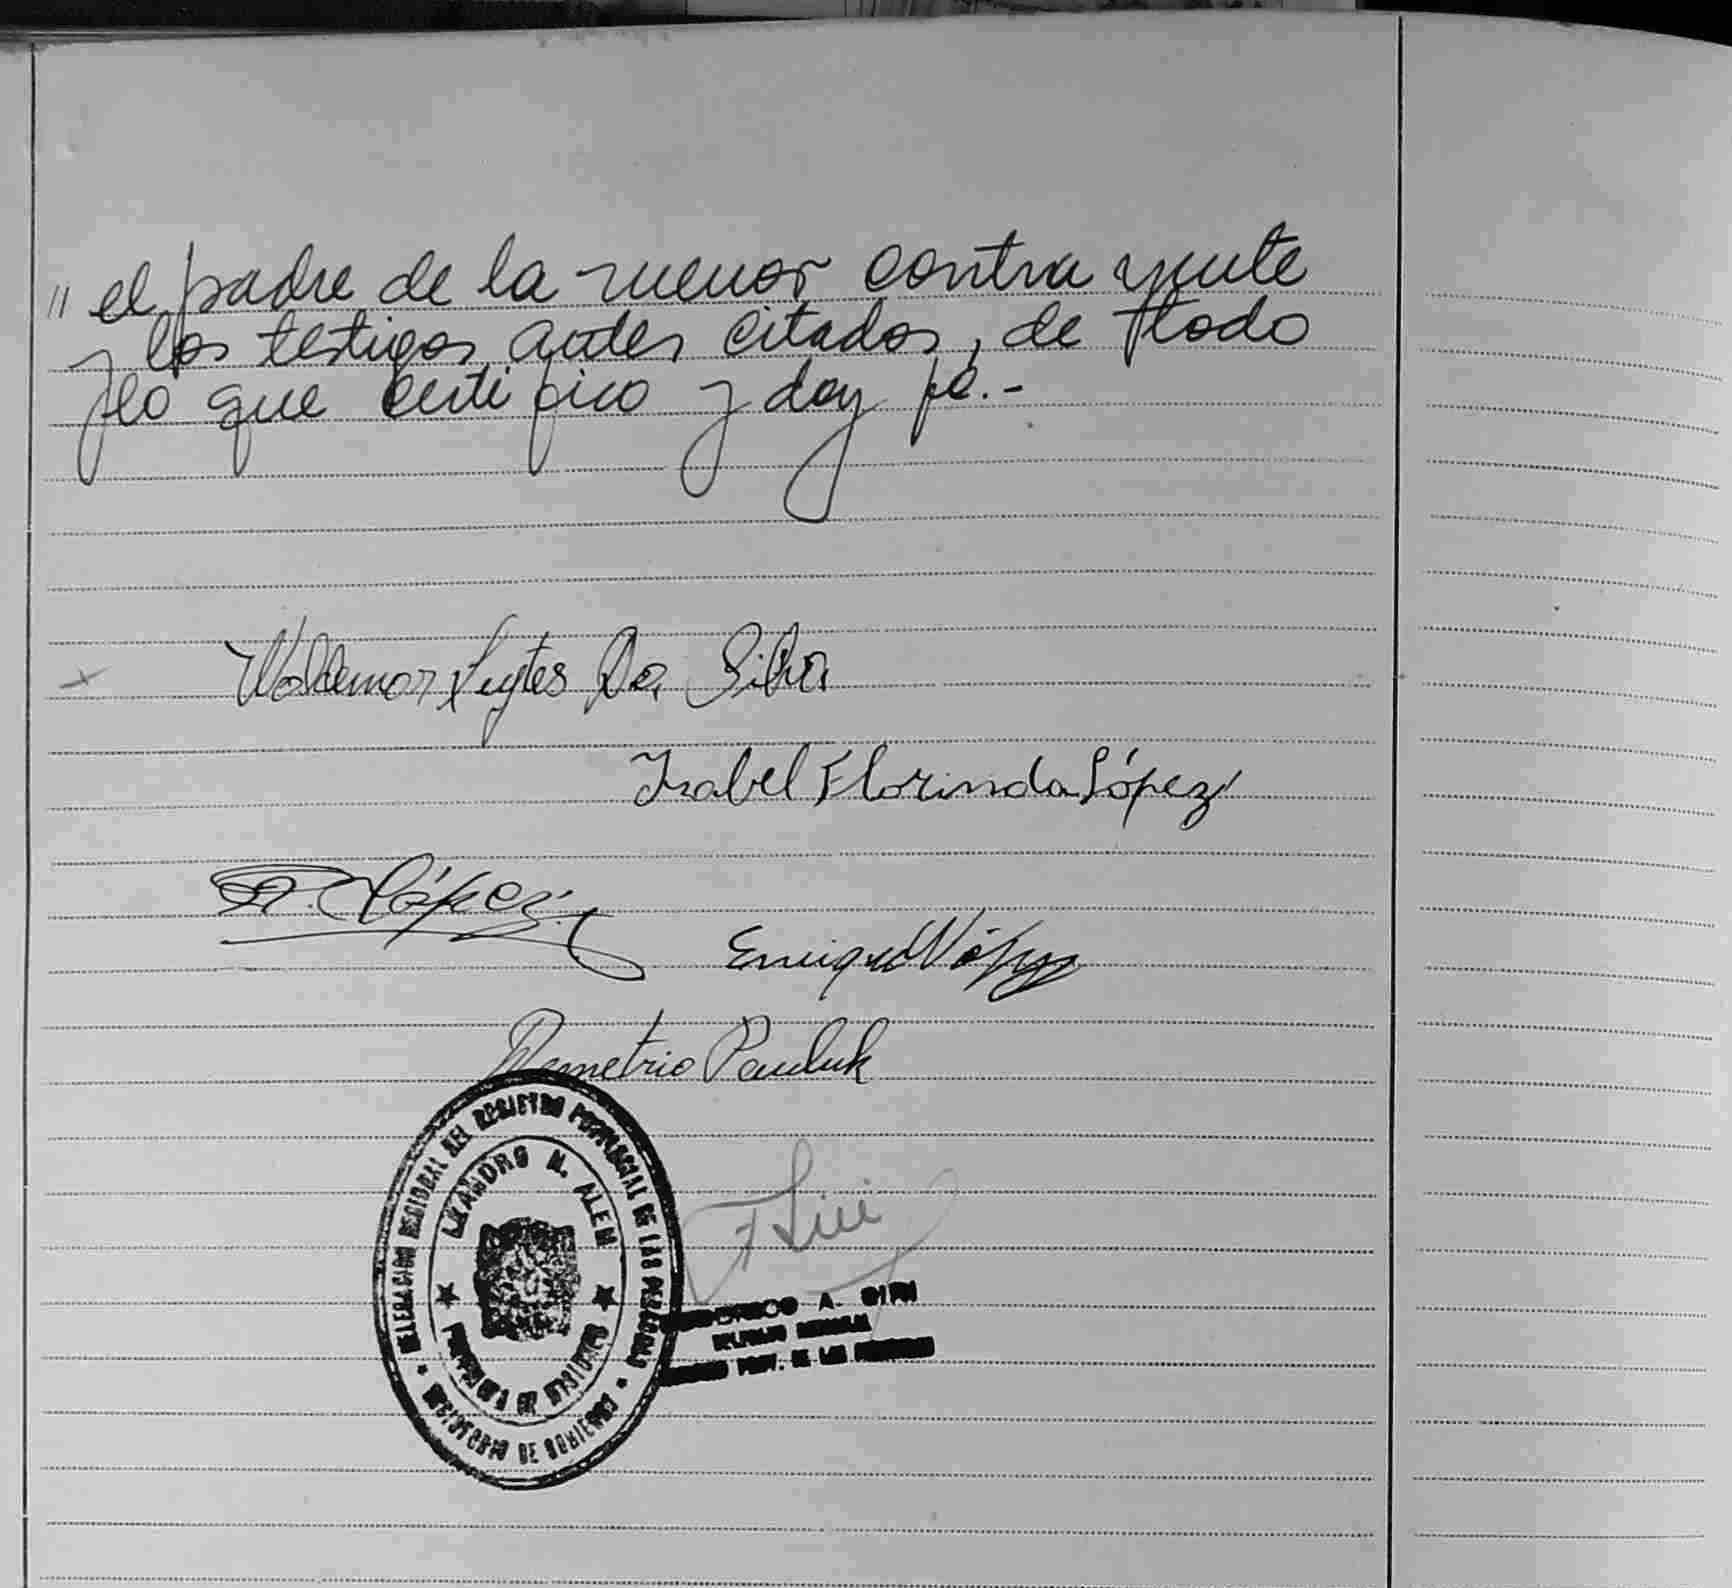 " el padre de la menor contrayente
y los testigos antes citados, de todo
lo que certifico y doy fe.-
Waldemar Da Silva
Isabel Florinda López
López
Enrique López
Demetrio Pauluk
DELEGACION REGIONAL DEL REGISTRO PROVINCIAL DE LAS PERSONAS
LEANDRO N. ALEM
PROVINCIA DE MISIONES
MINISTERIO DE GOBIERNO
A.
PROV. DE LAS PERSONAS